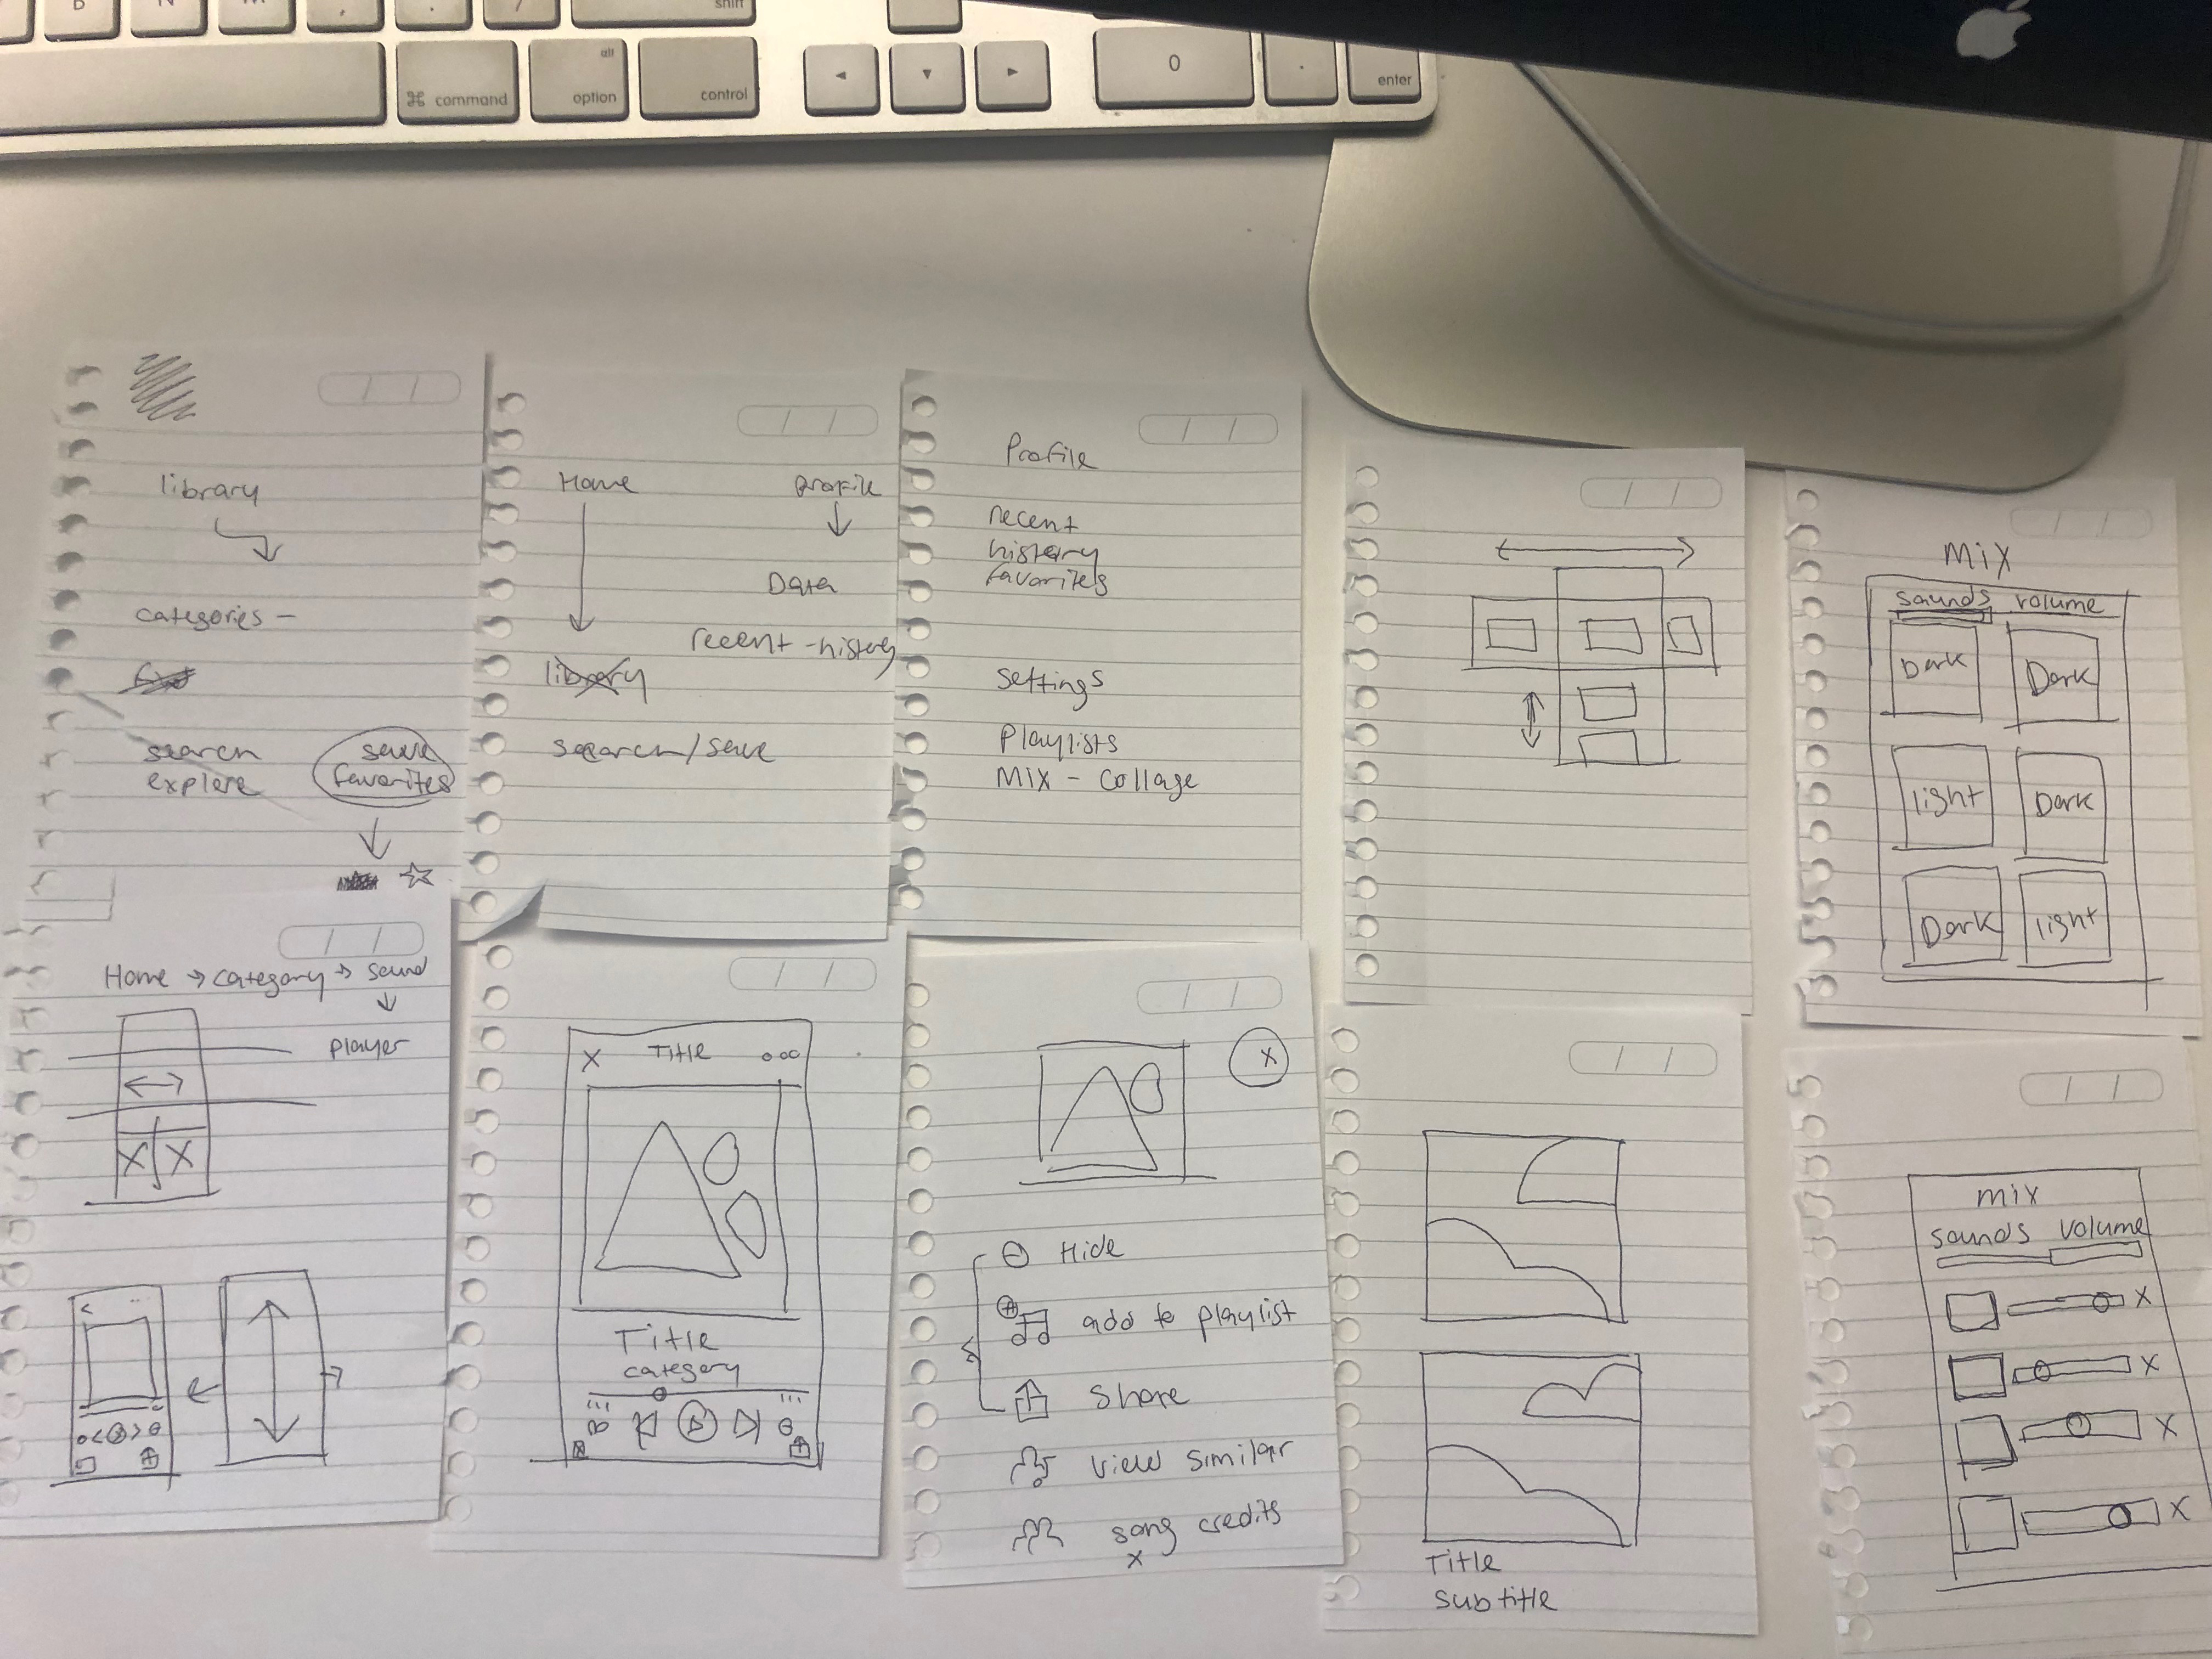 shift
⌘ command
alt
option
control
0
.
enter
library
categories -
search
explore
save
favorites
Home
profile
Data
recent - history
library
search/save
Profile
recent
history
favorites
settings
Playlists
Mix - Collage
Mix
sounds volume
Dark Dark
light Dark
Dark light
Home → category → sound
player
X X
X Title ooo
Title
category
X
Hide
add to playlist
Share
view similar
song credits
x
Title
subtitle
mix
sounds volume
X
X
X
X